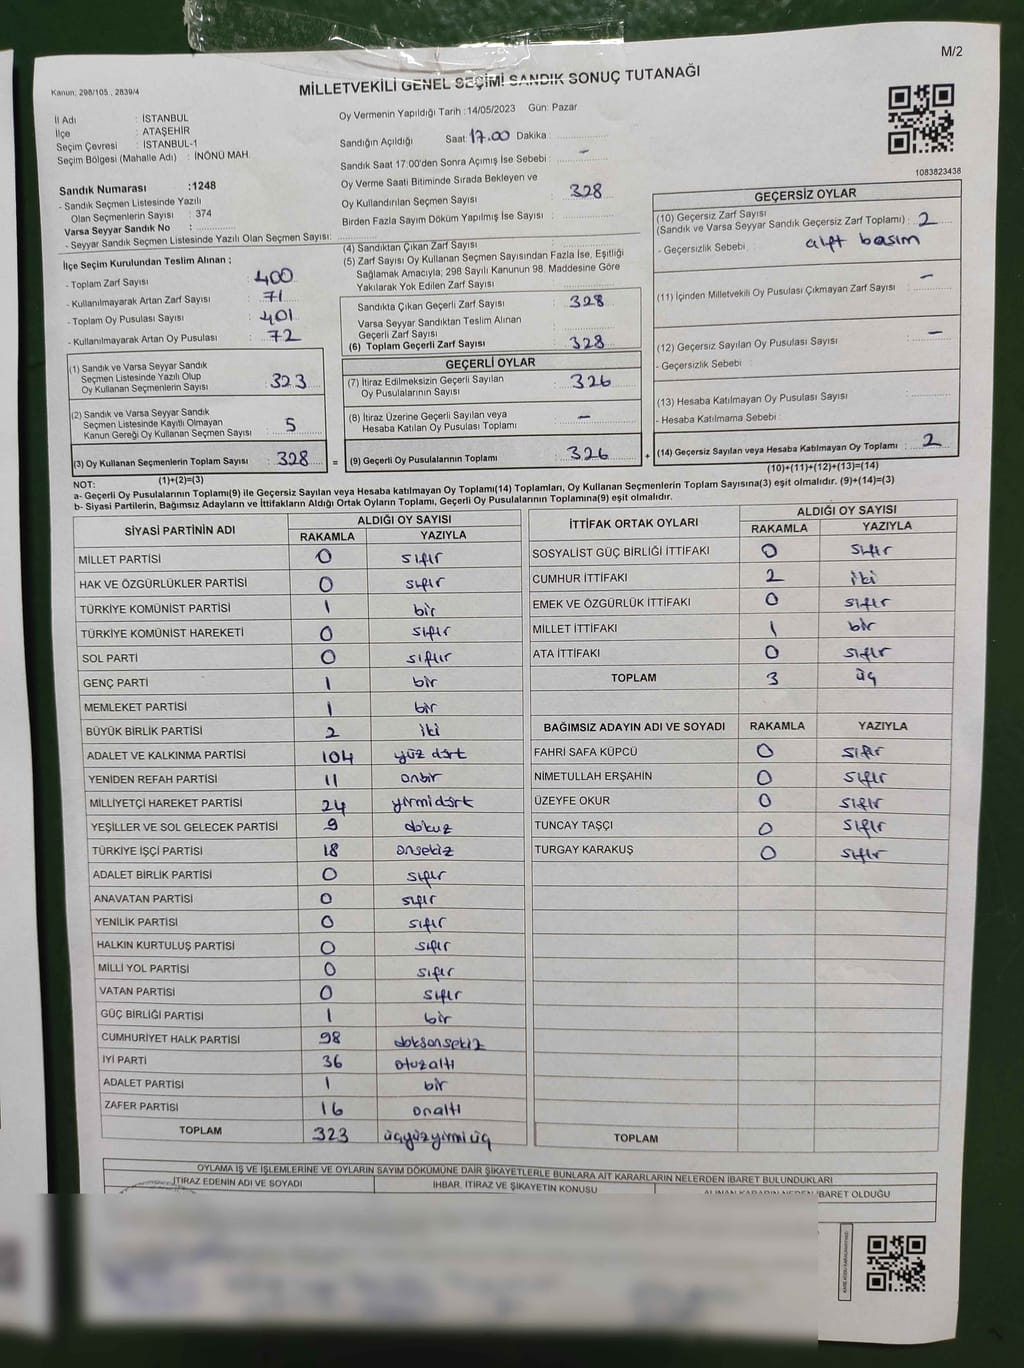 M/2
Kanun: 298/105 , 2839/4
MİLLETVEKİLİ GENEL SEÇİMİ SANDIK SONUÇ TUTANAĞI
İl Adı : İSTANBUL
İlçe : ATAŞEHİR
Seçim Çevresi : İSTANBUL-1
Seçim Bölgesi (Mahalle Adı) : İNÖNÜ MAH.
Sandık Numarası :1248
- Sandık Seçmen Listesinde Yazılı
Olan Seçmenlerin Sayısı : 374
Varsa Seyyar Sandık No :
- Seyyar Sandık Seçmen Listesinde Yazılı Olan Seçmen Sayısı:
Oy Vermenin Yapıldığı Tarih :14/05/2023 Gün: Pazar
Sandığın Açıldığı Saat: 17.00 Dakika :
Sandık Saat 17:00'den Sonra Açımış İse Sebebi : -
Oy Verme Saati Bitiminde Sırada Bekleyen ve
Oy Kullandırılan Seçmen Sayısı : 328
Birden Fazla Sayım Döküm Yapılmış İse Sayısı :
1083823438
İlçe Seçim Kurulundan Teslim Alınan ;
- Toplam Zarf Sayısı : 400
- Kullanılmayarak Artan Zarf Sayısı : 71
- Toplam Oy Pusulası Sayısı : 401
- Kullanılmayarak Artan Oy Pusulası : 72
(1) Sandık ve Varsa Seyyar Sandık
Seçmen Listesinde Yazılı Olup
Oy Kullanan Seçmenlerin Sayısı : 323
(2) Sandık ve Varsa Seyyar Sandık
Seçmen Listesinde Kayıtlı Olmayan
Kanun Gereği Oy Kullanan Seçmen Sayısı : 5
(3) Oy Kullanan Seçmenlerin Toplam Sayısı : 328
(1)+(2)=(3)
(4) Sandıktan Çıkan Zarf Sayısı :
(5) Zarf Sayısı Oy Kullanan Seçmen Sayısından Fazla İse, Eşitliği
Sağlamak Amacıyla; 298 Sayılı Kanunun 98. Maddesine Göre
Yakılarak Yok Edilen Zarf Sayısı :
Sandıkta Çıkan Geçerli Zarf Sayısı : 328
Varsa Seyyar Sandıktan Teslim Alınan
Geçerli Zarf Sayısı :
(6) Toplam Geçerli Zarf Sayısı : 328
GEÇERLİ OYLAR
(7) İtiraz Edilmeksizin Geçerli Sayılan
Oy Pusulalarının Sayısı : 326
(8) İtiraz Üzerine Geçerli Sayılan veya
Hesaba Katılan Oy Pusulası Toplamı : -
= (9) Geçerli Oy Pusulalarının Toplamı : 326
GEÇERSİZ OYLAR
(10) Geçersiz Zarf Sayısı
(Sandık ve Varsa Seyyar Sandık Geçersiz Zarf Toplamı) : 2
- Geçersizlik Sebebi : basım
(11) İçinden Milletvekili Oy Pusulası Çıkmayan Zarf Sayısı : -
(12) Geçersiz Sayılan Oy Pusulası Sayısı : -
- Geçersizlik Sebebi :
(13) Hesaba Katılmayan Oy Pusulası Sayısı :
- Hesaba Katılmama Sebebi :
+ (14) Geçersiz Sayılan veya Hesaba Katılmayan Oy Toplamı : 2
(10)+(11)+(12)+(13)=(14)
NOT:
a- Geçerli Oy Pusulalarının Toplamı(9) ile Geçersiz Sayılan veya Hesaba katılmayan Oy Toplamı(14) Toplamları, Oy Kullanan Seçmenlerin Toplam Sayısına(3) eşit olmalıdır. (9)+(14)=(3)
b- Siyasi Partilerin, Bağımsız Adayların ve İttifakların Aldığı Ortak Oyların Toplamı, Geçerli Oy Pusulalarının Toplamına(9) eşit olmalıdır.
SİYASİ PARTİNİN ADI ALDIĞI OY SAYISI
RAKAMLA YAZIYLA
MİLLET PARTİSİ 0 sıfır
HAK VE ÖZGÜRLÜKLER PARTİSİ 0 sıfır
TÜRKİYE KOMÜNİST PARTİSİ 1 bir
TÜRKİYE KOMÜNİST HAREKETİ 0 sıfır
SOL PARTİ 0 sıfır
GENÇ PARTİ 1 bir
MEMLEKET PARTİSİ 1 bir
BÜYÜK BİRLİK PARTİSİ 2 iki
ADALET VE KALKINMA PARTİSİ 104 yüz dört
YENİDEN REFAH PARTİSİ 11 onbir
MİLLİYETÇİ HAREKET PARTİSİ 24 yirmidört
YEŞİLLER VE SOL GELECEK PARTİSİ 9 dokuz
TÜRKİYE İŞÇİ PARTİSİ 18 onsekiz
ADALET BİRLİK PARTİSİ 0 sıfır
ANAVATAN PARTİSİ 0 sıfır
YENİLİK PARTİSİ 0 sıfır
HALKIN KURTULUŞ PARTİSİ 0 sıfır
MİLLİ YOL PARTİSİ 0 sıfır
VATAN PARTİSİ 0 sıfır
GÜÇ BİRLİĞİ PARTİSİ 1 bir
CUMHURİYET HALK PARTİSİ 98 doksansekiz
İYİ PARTİ 36 otuzaltı
ADALET PARTİSİ 1 bir
ZAFER PARTİSİ 16 onaltı
TOPLAM 323 üçyüzyirmiüç
İTTİFAK ORTAK OYLARI ALDIĞI OY SAYISI
RAKAMLA YAZIYLA
SOSYALİST GÜÇ BİRLİĞİ İTTİFAKI 0 sıfır
CUMHUR İTTİFAKI 2 iki
EMEK VE ÖZGÜRLÜK İTTİFAKI 0 sıfır
MİLLET İTTİFAKI 1 bir
ATA İTTİFAKI 0 sıfır
TOPLAM 3 üç
BAĞIMSIZ ADAYIN ADI VE SOYADI RAKAMLA YAZIYLA
FAHRİ SAFA KÜPCÜ 0 sıfır
NİMETULLAH ERŞAHİN 0 sıfır
ÜZEYFE OKUR 0 sıfır
TUNCAY TAŞÇI 0 sıfır
TURGAY KARAKUŞ 0 sıfır
TOPLAM
OYLAMA İŞ VE İŞLEMLERİNE VE OYLARIN SAYIM DÖKÜMÜNE DAİR ŞİKAYETLERLE BUNLARA AİT KARARLARIN NELERDEN İBARET BULUNDUKLARI
İTİRAZ EDENİN ADI VE SOYADI İHBAR, İTİRAZ VE ŞİKAYETİN KONUSU ALINAN KARARIN NEDEN İBARET OLDUĞU